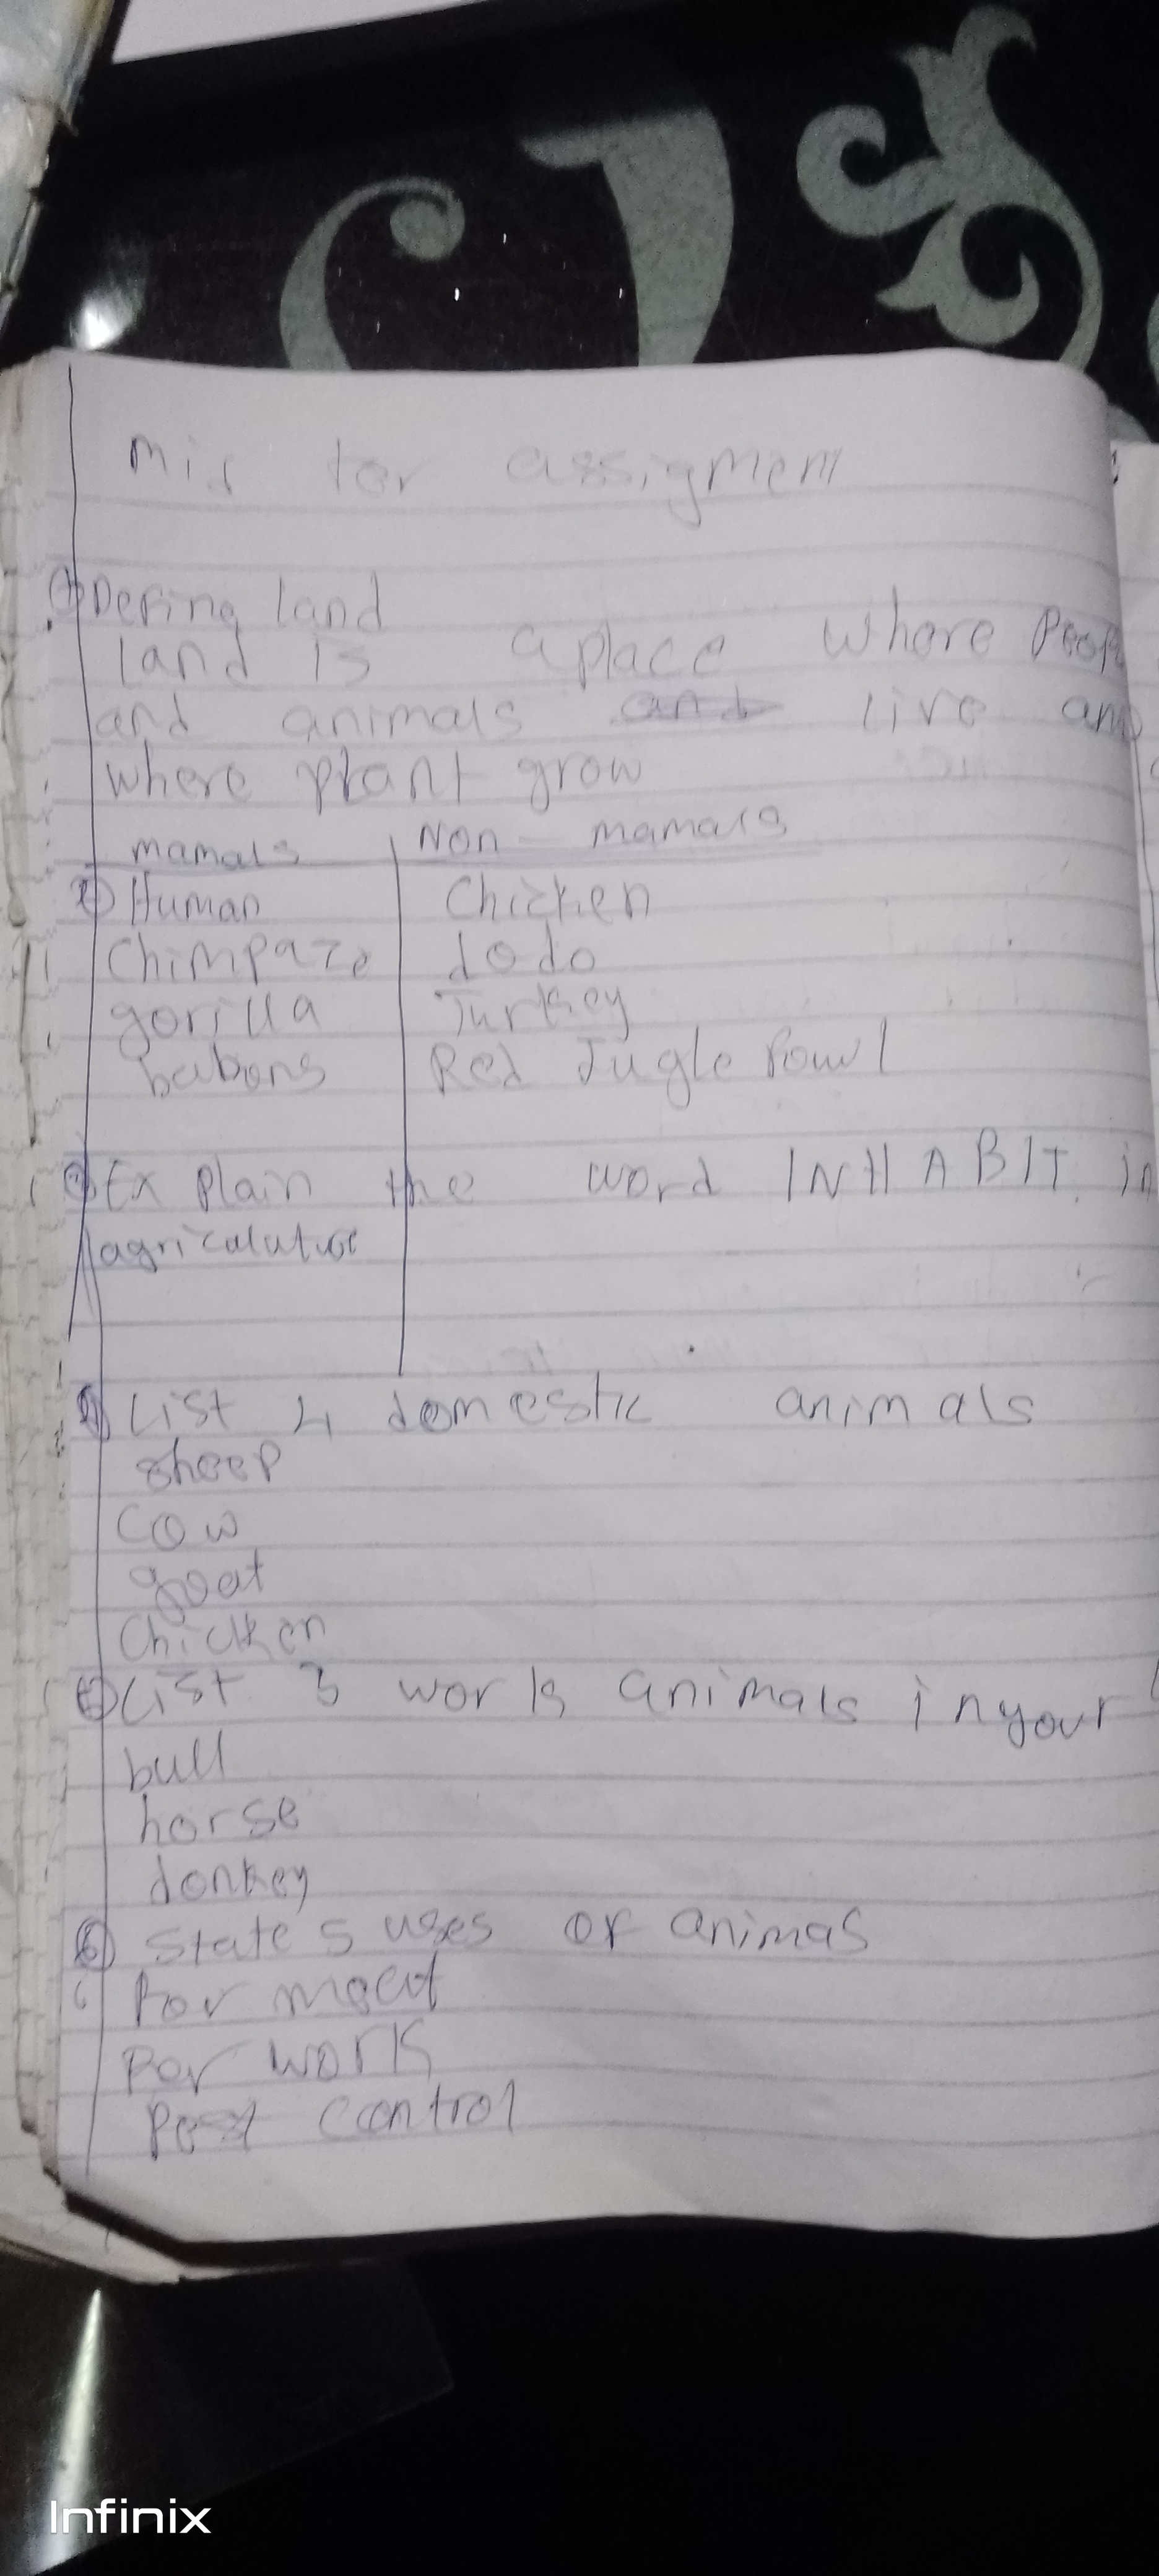 mis ter assigment
① Defing land
land is a place where Peop
and animals and live and
where plant grow
mamals Non - mamals
② Human Chicken
Chimpaze dodo
gorilla Turkey
babons Red Jugle fowl
③ Explain the word INHABIT in
agricalutur
④ List 4 domestic animals
sheep
cow
goat
Chicken
⑤ List 3 works animals in your
bull
horse
donkey
⑥ state 5 uses of animas
for meat
for work
Pest control
Infinix